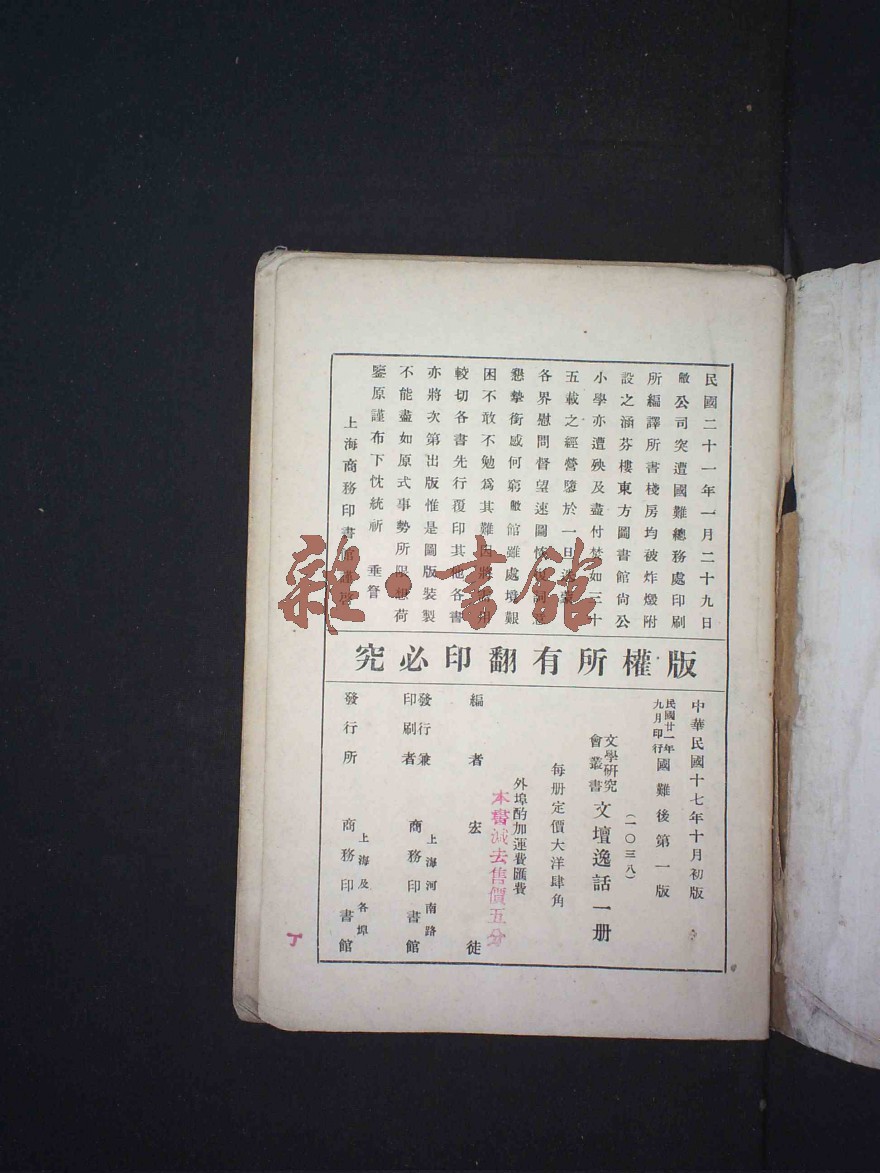 民國二十一年一月二十九日
敝公司突遭國難總務處印刷
所編譯所書棧房均被炸燬附
設之涵芬樓東方圖書館尚公
小學亦遭殃及盡付焚如三十
五載之經營隳於一旦迭蒙
各界慰問督望速圖恢復詞意
懇摯銜感何窮敝館雖處境艱
困不敢不勉爲其難因將需用
較切各書先行覆印其他各書
亦將次第出版惟是圖版裝製
不能盡如原式事勢所限想荷
鑒原謹布下忱統祈 垂詧
上海商務印書館謹啓
版權所有翻印必究
中華民國十七年十月初版
民國廿一年九月印行國難後第一版
(一〇三八)
文學研究會叢書 文壇逸話一册
每册定價大洋肆角
外埠酌加運費匯費
本書減去售價五分
編者 宏徒
發行兼印刷者 上海河南路 商務印書館
發行所 上海及各埠 商務印書館
丁
雜·書館